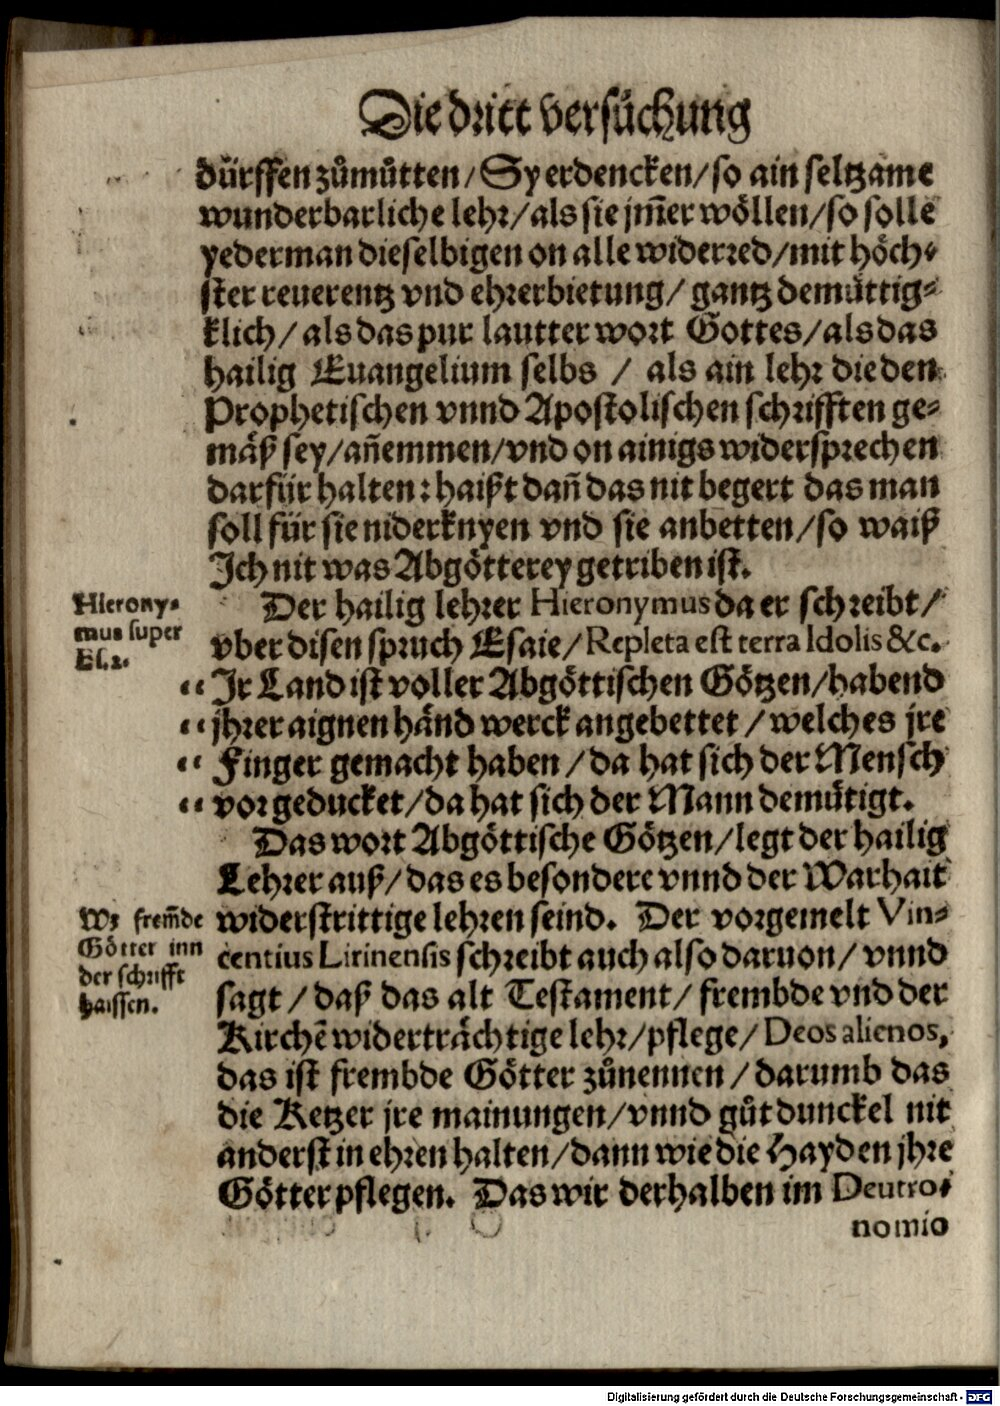 Die dritt versuͤchung
duͤrffen zuͦmuͤtten / Sy erdencken / so ain seltzame
wunderbarliche lehr / als sie jm̄er woͤllen / so solle
yederman dieselbigen on alle widerred / mit hoͤch-
ster reuerentz vnd ehrerbietung / gantz demuͤttig-
klich / als das pur lautter wort Gottes / als das
hailig Euangelium selbs / als ain lehr die den
Prophetischen vnnd Apostolischen schrifften ge-
maͤß sey / an̄emmen / vnd on ainigs widersprechen
darfür halten: haißt dan̄ das nit begert das man
soll für sie niderknyen vnd sie anbetten / so waiß
Ich nit was Abgoͤtterey getriben ist.
Hierony-
mus super
Es. 2.
Der hailig lehrer Hieronymus da er schreibt /
vber disen spruch Esaie / Repleta est terra Idolis &c.
“ Ir Land ist voller Abgoͤttischen Goͤtzen / habend
“ jhrer aignen haͤnd werck angebettet / welches jre
“ Finger gemacht haben / da hat sich der Mensch
“ vor geducket / da hat sich der Mann demuͤtigt.
Das wort Abgoͤttische Goͤtzen / legt der hailig
Lehrer auß / das es besondere vnnd der Warhait
widerstrittige lehren seind. Der vorgemelt Vin-
centius Lirinensis schreibt auch also daruon / vnnd
sagt / daß das alt Testament / frembde vnd der
Kirchē widertraͤchtige lehr / pflege / Deos alienos,
das ist frembde Goͤtter zuͦnennen / darumb das
die Ketzer jre mainungen / vnnd guͦtdunckel nit
anderst in ehren halten / dann wie die Hayden jhre
Goͤtter pflegen. Das wir derhalben im Deutro-
nomio
Wz frem̄de
Goͤtter inn
der schrifft
haissen.
Digitalisierung gefördert durch die Deutsche Forschungsgemeinschaft - DFG